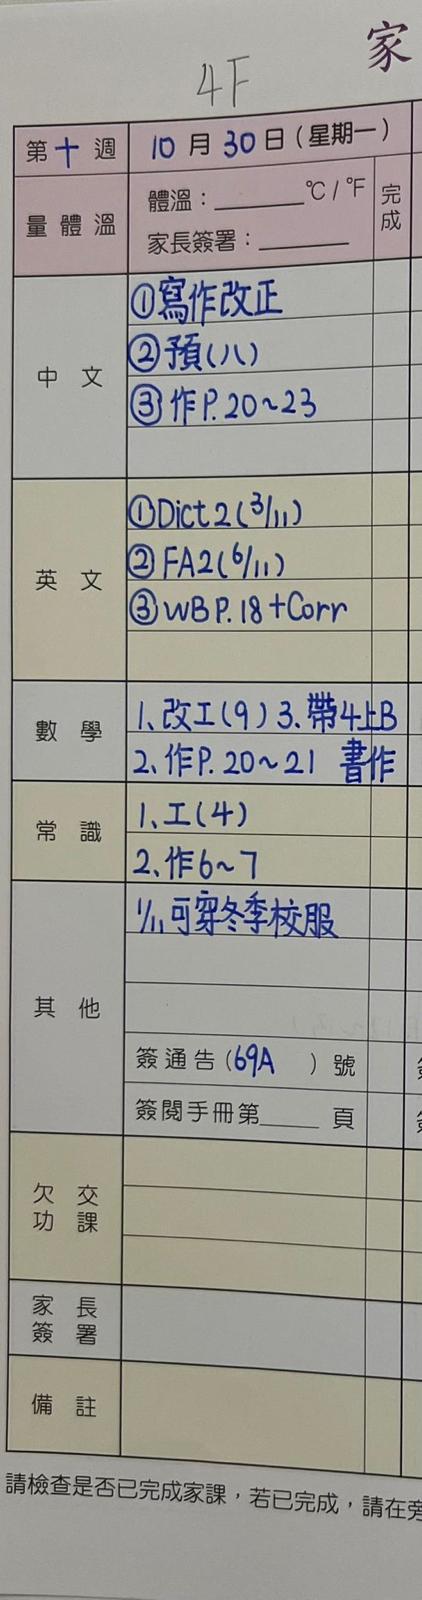 家
4F
第十週 10月30日(星期一)
量體溫 體溫：______°C / °F 完成
家長簽署：______
中文
①寫作改正
②預(八)
③作P.20~23
英文
①Dict 2 (3/11)
②FA2 (6/11)
③WB P.18 + Corr
數學
1、改工(9) 3、帶4上B
2、作P.20~21 書作
常識
1、工(4)
2、作6~7
其他
1/11 可穿冬季校服
簽通告(69A )號
簽閱手冊第____頁
欠交功課
家長簽署
備註
請檢查是否已完成家課，若已完成，請在旁